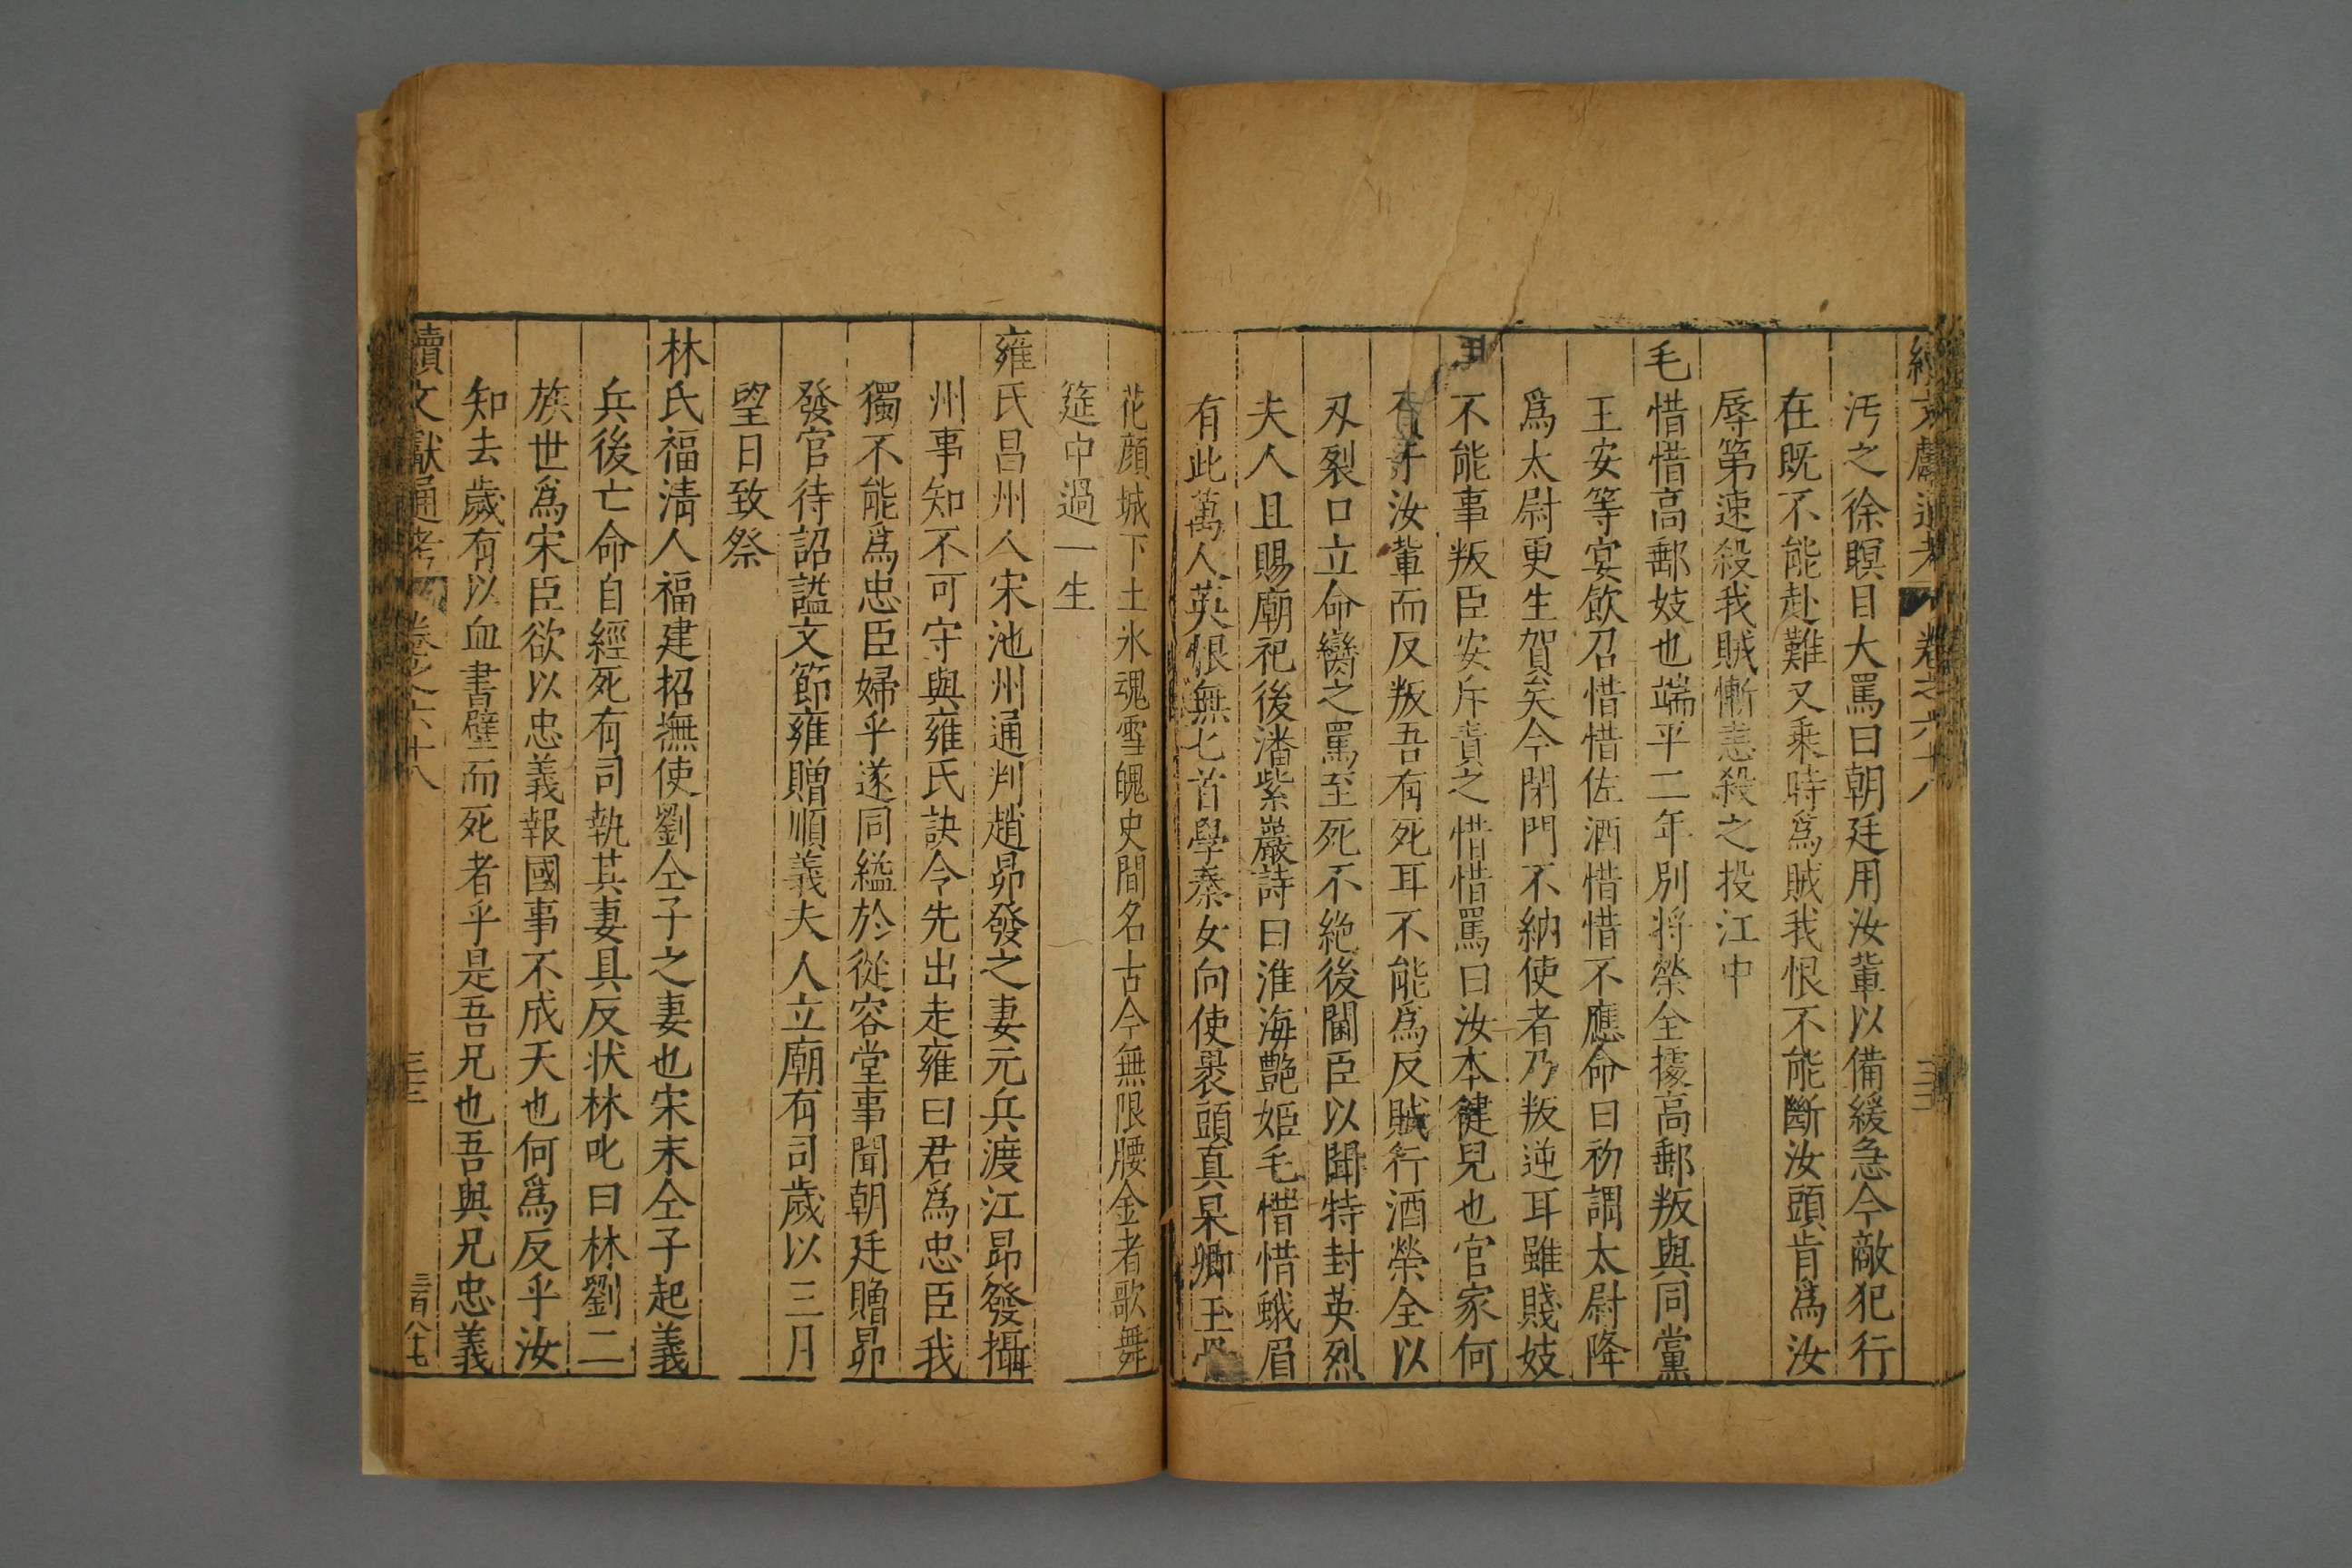 續文獻通考 卷之六十八
汚之徐瞑目大罵曰朝廷用汝軰以備緩急今敵犯行
在既不能赴難又乗時爲賊我恨不能斷汝頭肯爲汝
辱第速殺我賊慚恚殺之投江中
毛惜惜高郵妓也端平二年別將榮全據高郵叛與同黨
王安等宴飲召惜惜佐酒惜惜不應命曰初謂太尉降
爲太尉更生賀矣今閉門不納使者乃叛逆耳雖賤妓
不能事叛臣安斥責之惜惜罵曰汝本健兒也官家何
汝軰而反叛吾有死耳不能爲反賊行酒榮全以
刄裂口立命臠之罵至死不絶後閫臣以聞特封英烈
夫人且賜廟祀後潘紫巖詩曰淮海艶姫毛惜惜蛾眉
有此萬人英恨無匕首學秦女向使裹頭真杲卿玉骨
花顔城下土氷魂雪魄史間名古今無限腰金者歌舞
筵中過一生
雍氏昌州人宋池州通判趙昴發之妻元兵渡江昴發攝
州事知不可守與雍氏訣令先出走雍曰君爲忠臣我
獨不能爲忠臣婦乎遂同縊於從容堂事聞朝廷贈昴
發官待詔謚文節雍贈順義夫人立廟有司歲以三月
望日致祭
林氏福淸人福建招撫使劉仝子之妻也宋末仝子起義
兵後亡命自經死有司執其妻具反状林叱曰林劉二
族世爲宋臣欲以忠義報國事不成天也何爲反乎汝
知去歲有以血書壁而死者乎是吾兄也吾與兄忠義
續文獻通考 卷之六十八 三百八十七